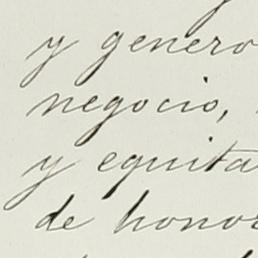 y genero
negocio,
y equita
de honor